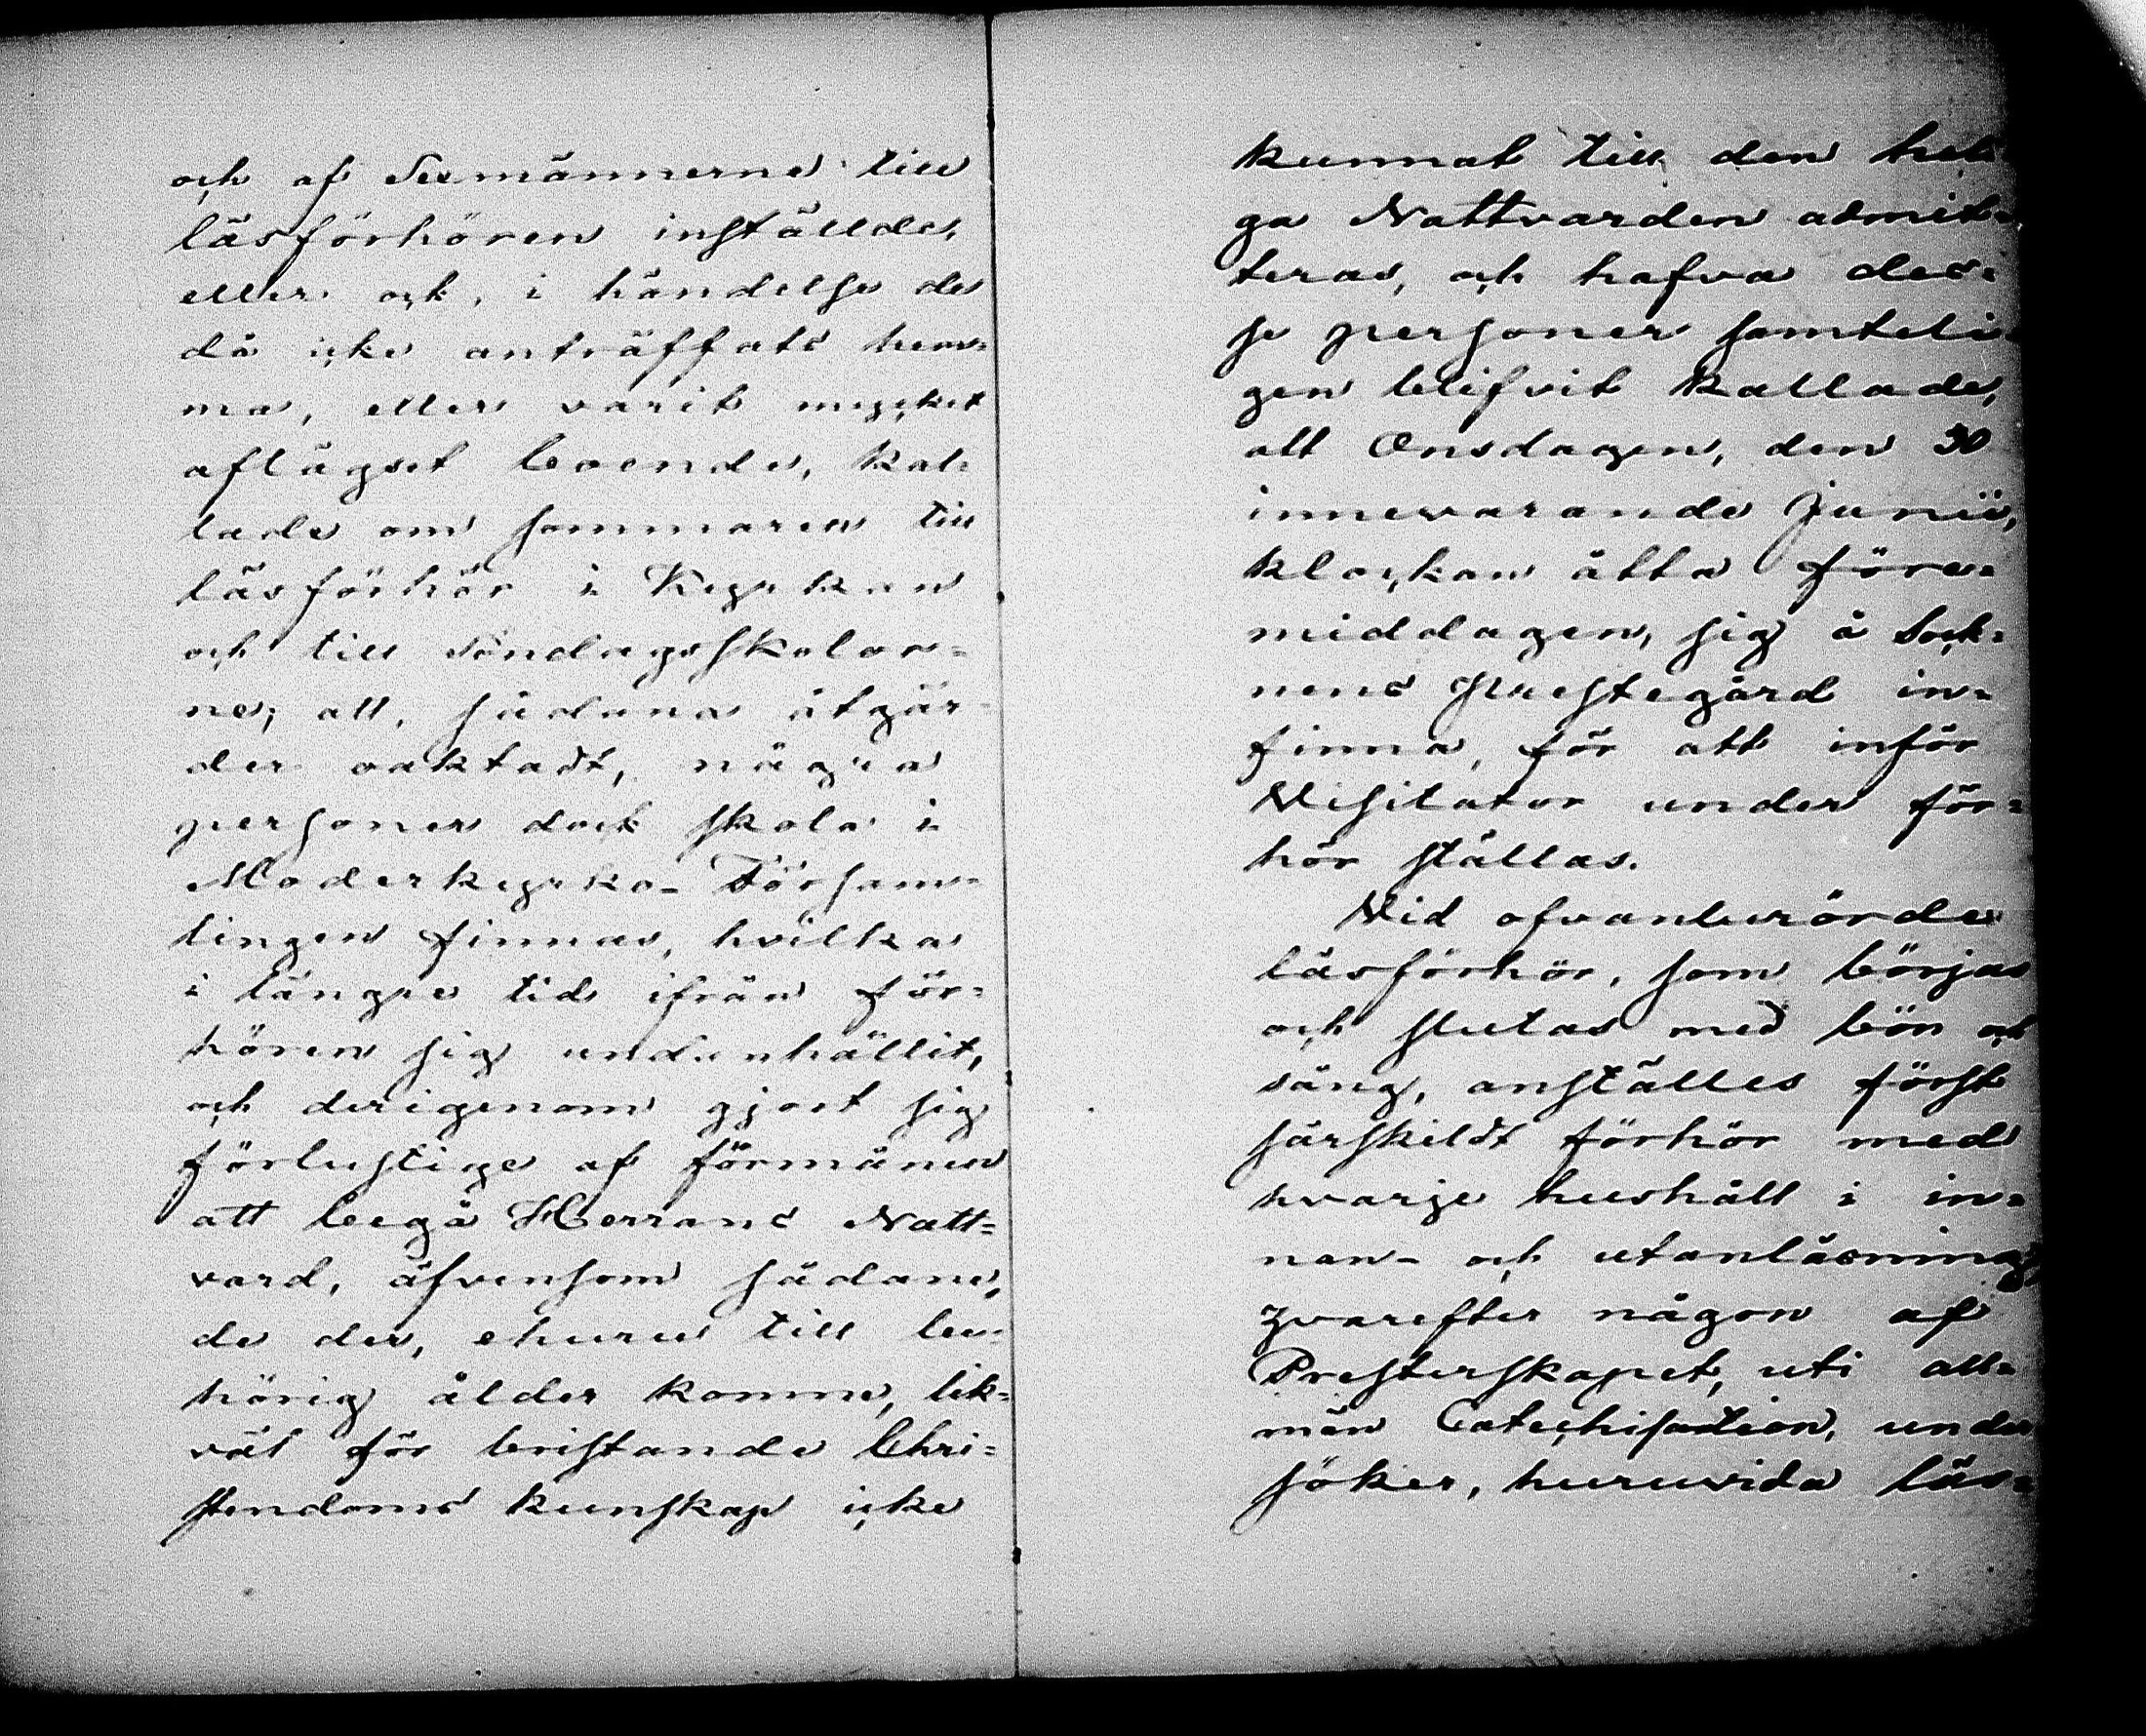 och af Sexmännerne till
läsförhören inställde,
eller ock, i händelse de
då icke anträffats hem-
ma, eller varit mycket
aflägset boende, kal-
lade om sommaren till
läsförhör i Kyrkan
och till Söndagsskolor-
ne; att, sådana åtgär-
der oaktadt, några
personer dock skola i
Moderkyrko-Församm-
lingen finnas, hvilka
i längre tid ifrån för-
hören sig undanhållit,
och derigenom gjort sig
förlustige af förmånen
att begå Herrans Natt-
vard, äfvensom sådane,
de der, ehuru till be-
hörig ålder komne, lik-
väl för bristande Chri-
stendoms kunskap icke
kunnat till den heli-
ga Nattvarden admit-
teras, och hafva des-
se personer samteli-
gen blifvit kallade,
att Onsdagen, den 30
innevarande Junii,
klockan åtta före-
middagen, sig å Sock-
nens Prestegård in-
finna, för att inför
Visitator under för-
hör ställas.
Vid ofvanberörde
läsförhör, som börjas
och slutas med bön och
sång, anställes först
särskildt förhör med
hvarje hushåll i in-
nan- och utanläsning,
hvarefter någon af
Presterskapet, uti all-
män Catechisation, under
söker, huruvida läs-